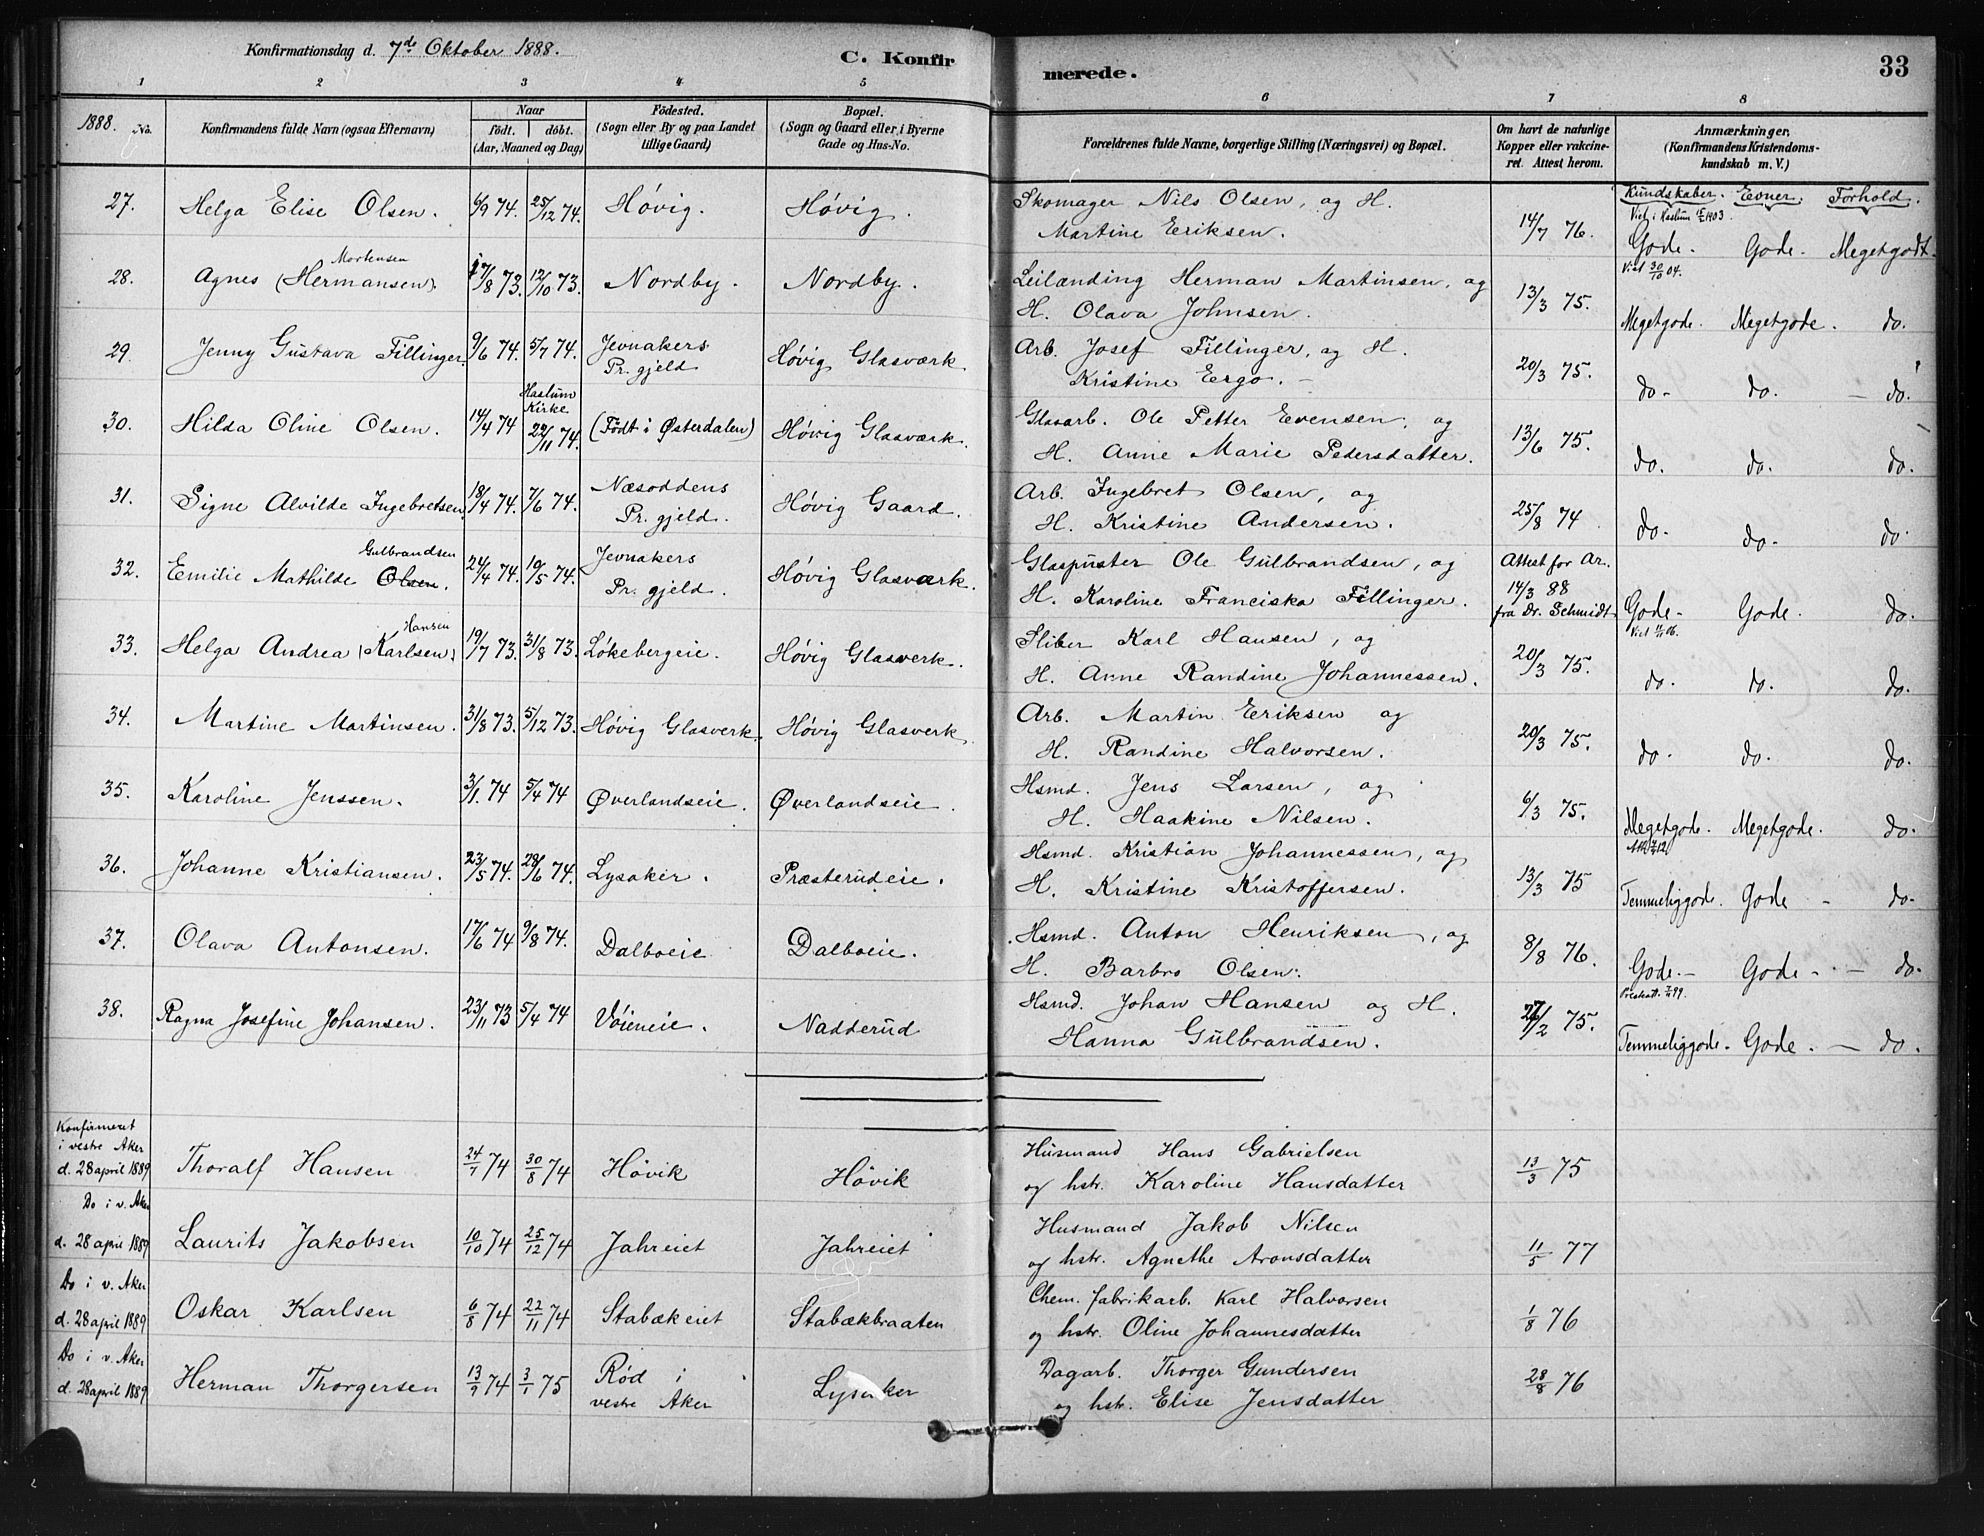 Konfirmationsdag d. 7de Oktober 1888.
C. Konfirmerede.
33
1 2 3 4 5 6 7 8
1888. No.
Konfirmandens fulde Navn (ogsaa Efternavn)
Naar
födt. döbt.
(Aar, Maaned og Dag)
Födested.
(Sogn eller By og paa Landet
tillige Gaard)
Bopæl.
(Sogn og Gaard eller, i Byerne
Gade og Hus-No.
Forældrenes fulde Navne, borgerlige Stilling (Næringsvei) og Bopæl.
Om havt de naturlige
Kopper eller vakcine-
ret. Attest herom.
Anmærkninger.
(Konfirmandens Kristendoms-
kundskab m. V.)
Kundskaber. Evner. Forhold.
27. Helga Elise Olsen. 6/9 74. 25/12 74. Høvig. Høvig. Skomager Nils Olsen, og H.
Martine Eriksen. 14/7 76. Gode. Gode. Megetgodt.
Mortensen
28. Agnes (Hermansen). 17/8 73. 12/10 73. Nordby. Nordby. Leilænding Herman Martinsen, og
H. Olava Johnsen. 13/3 75. Viet 30/10 04. Megetgode. Megetgode. do.
29. Jenny Gustava Fillinger. 9/6 74. 5/7 74. Jevnakers
Pr. gjeld Høvig Glasværk. Arb. Josef Fillinger, og H.
Kristine Ergo. 20/3 75. do. do. do.
Haslum
Kirke
30. Hilda Oline Olsen. 14/4 74 22/11 74. (Født i Østerdalen) Høvig Glasværk. Glasarb. Ole Petter Evensen, og
H. Anne Marie Pedersdatter. 13/6 75. do. do. do.
31. Signe Alvilde Ingebretsen. 18/4 74. 7/6 74. Næsoddens
Pr. gjeld. Høvig Gaard. Arb. Ingebret Olsen, og
H. Kristine Andersen. 25/8 74. do. do. do.
Gulbrandsen
32. Emilie Mathilde Olsen. 24/4 74. 19/5 74. Jevnakers
Pr. gjeld. Høvig Glasværk. Glaspuster Ole Gulbrandsen, og
H. Karoline Franciska Fillinger. Attest for Ar.
14/3 88
fra Dr. Schmidt. Gode. Gode. do.
Hansen
33. Helga Andrea (Karlsen) 19/7 73. 31/8 73. Løkebergeie. Høvig Glasverk. Sliber Karl Hansen, og
H. Anne Randine Johannessen. 20/3 75. do. do. do.
34. Martine Martinsen. 31/8 73. 5/12 73. Høvig Glasverk. Høvig Glasverk. Arb. Martin Eriksen og
H. Randine Halvorsen. 20/3 75. do. do. do.
35. Karoline Jenssen. 3/1. 74 5/4 74 Øverlandseie. Øverlandseie. Hsmd. Jens Larsen, og
H. Haakine Nilsen. 6/3 75. Megetgode. Megetgode. do.
36. Johanne Kristiansen. 23/5 74. 28/6 74. Lysaker. Præsterudeie. Hsmd. Kristian Johannessen, og
H. Kristine Kristoffersen. 13/3 75 Temmeliggode. Gode - do.
37. Olava Antonsen. 17/6 74 9/8 74. Dalboeie Dalboeie. Hsmd. Anton Henriksen, og
H. Barbro Olsen. 8/8 76. Gode. - Gode - do.
38. Ragna Josefine Johansen. 23/11 73 5/4 74 Vøieneie. Nadderud Hsmd. Johan Hansen og H.
Hanna Gulbrandsen. 75. Temmeliggode. Gode. - do.
Konfirmeret
i vestre Aker
d. 28 april 1889 Thoralf Hansen 24/7 74 30/8 74 Høvik Høvik Husmand Hans Gabrielsen
og hstr. Karoline Hansdatter 13/3 75
Do i v. Aker
d. 28 april 1889 Laurits Jakobsen 10/10 74 25/12 74 Jahreiet Jahreiet Husmand Jakob Nilsen
og hstr. Agnethe Aronsdatter 11/5 77
Do i v. Aker
d. 28 april 1889 Oskar Karlsen 6/8 74 22/11 74 Stabækeiet Stabækbraaten Chem. fabrikarb. Karl Halvorsen
og hstr. Oline Johannesdatter 1/8 76
Do i v. Aker
d. 28 april 1889 Herman Thorgersen 13/9 74 3/1 75 Rød i
vestre Aker Lysaker Dagarb. Thorger Gundersen
og hstr. Elise Jensdatter 28/8 76